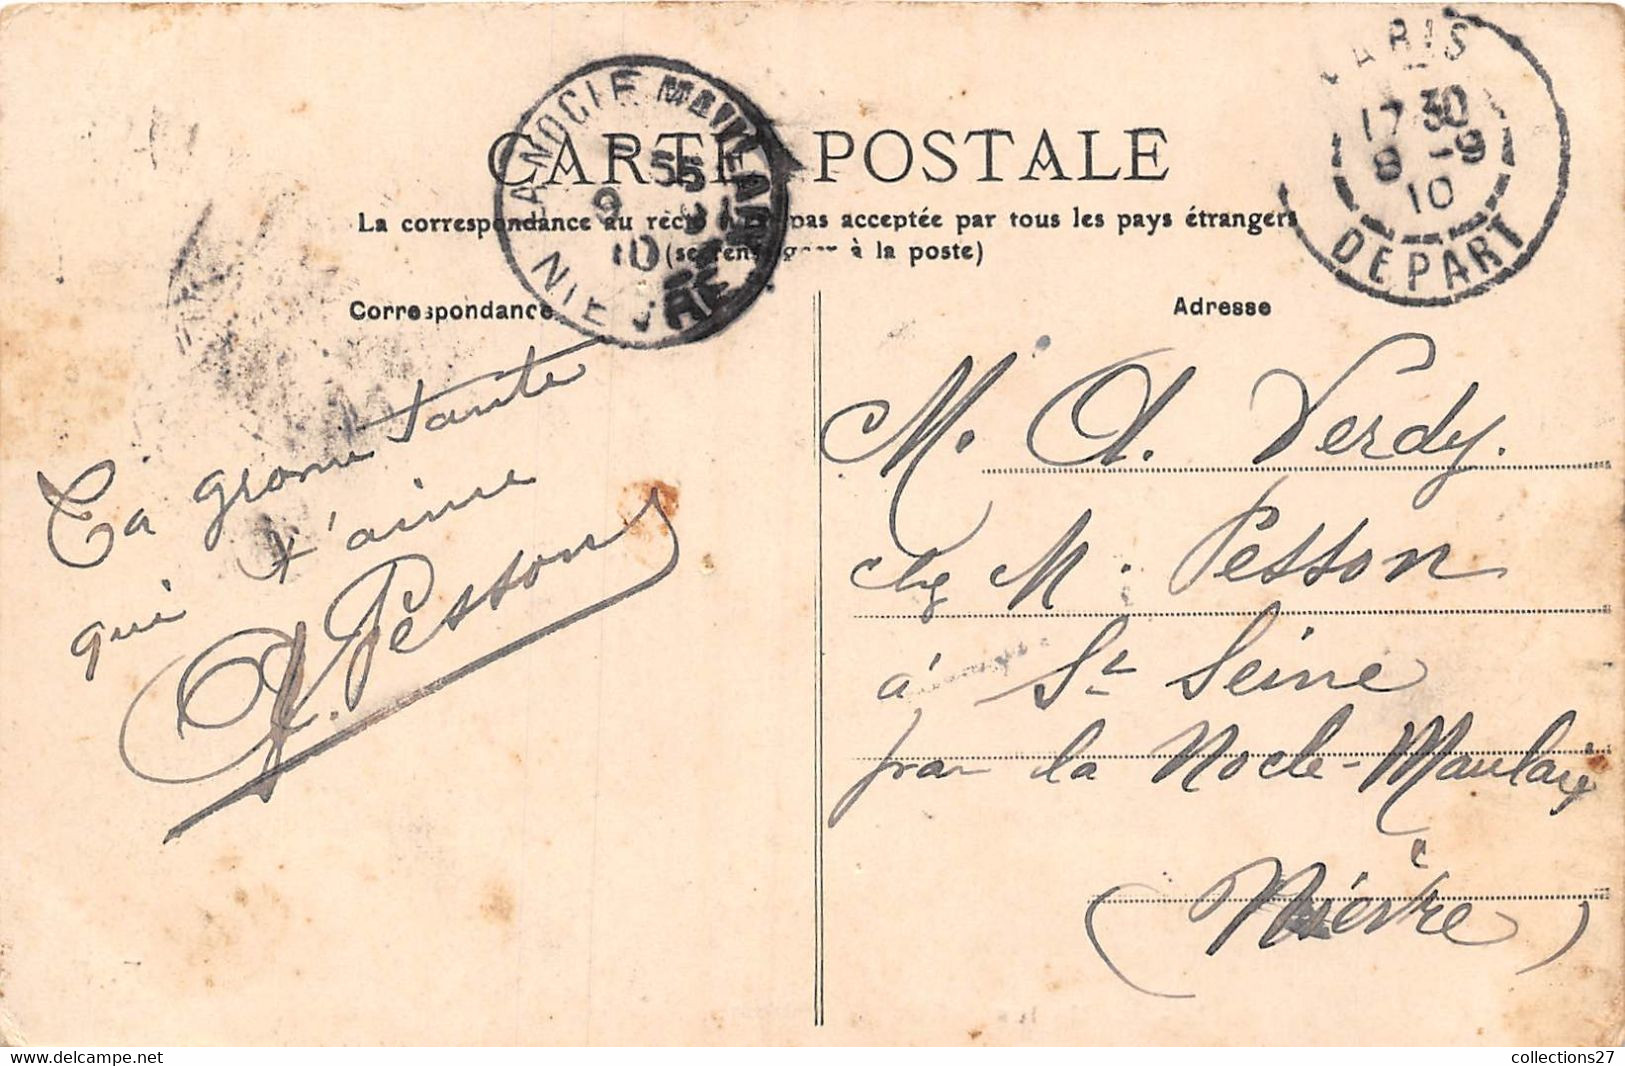 CARTE POSTALE
La correspondance au recto n'est pas acceptée par tous les pays étrangers
(se renseigner à la poste)
LA NOCLE MAULAIX
55
9 -9
10
NIEVRE
PARIS
17 30
8 -9
10
DEPART
Correspondance
Adresse
Ta grosse tante
qui t'aime
Pesson
M. A. Verdy.
chez M. Pesson
à St Seine
par la Nocle-Maulaix
(Nièvre)
collections27